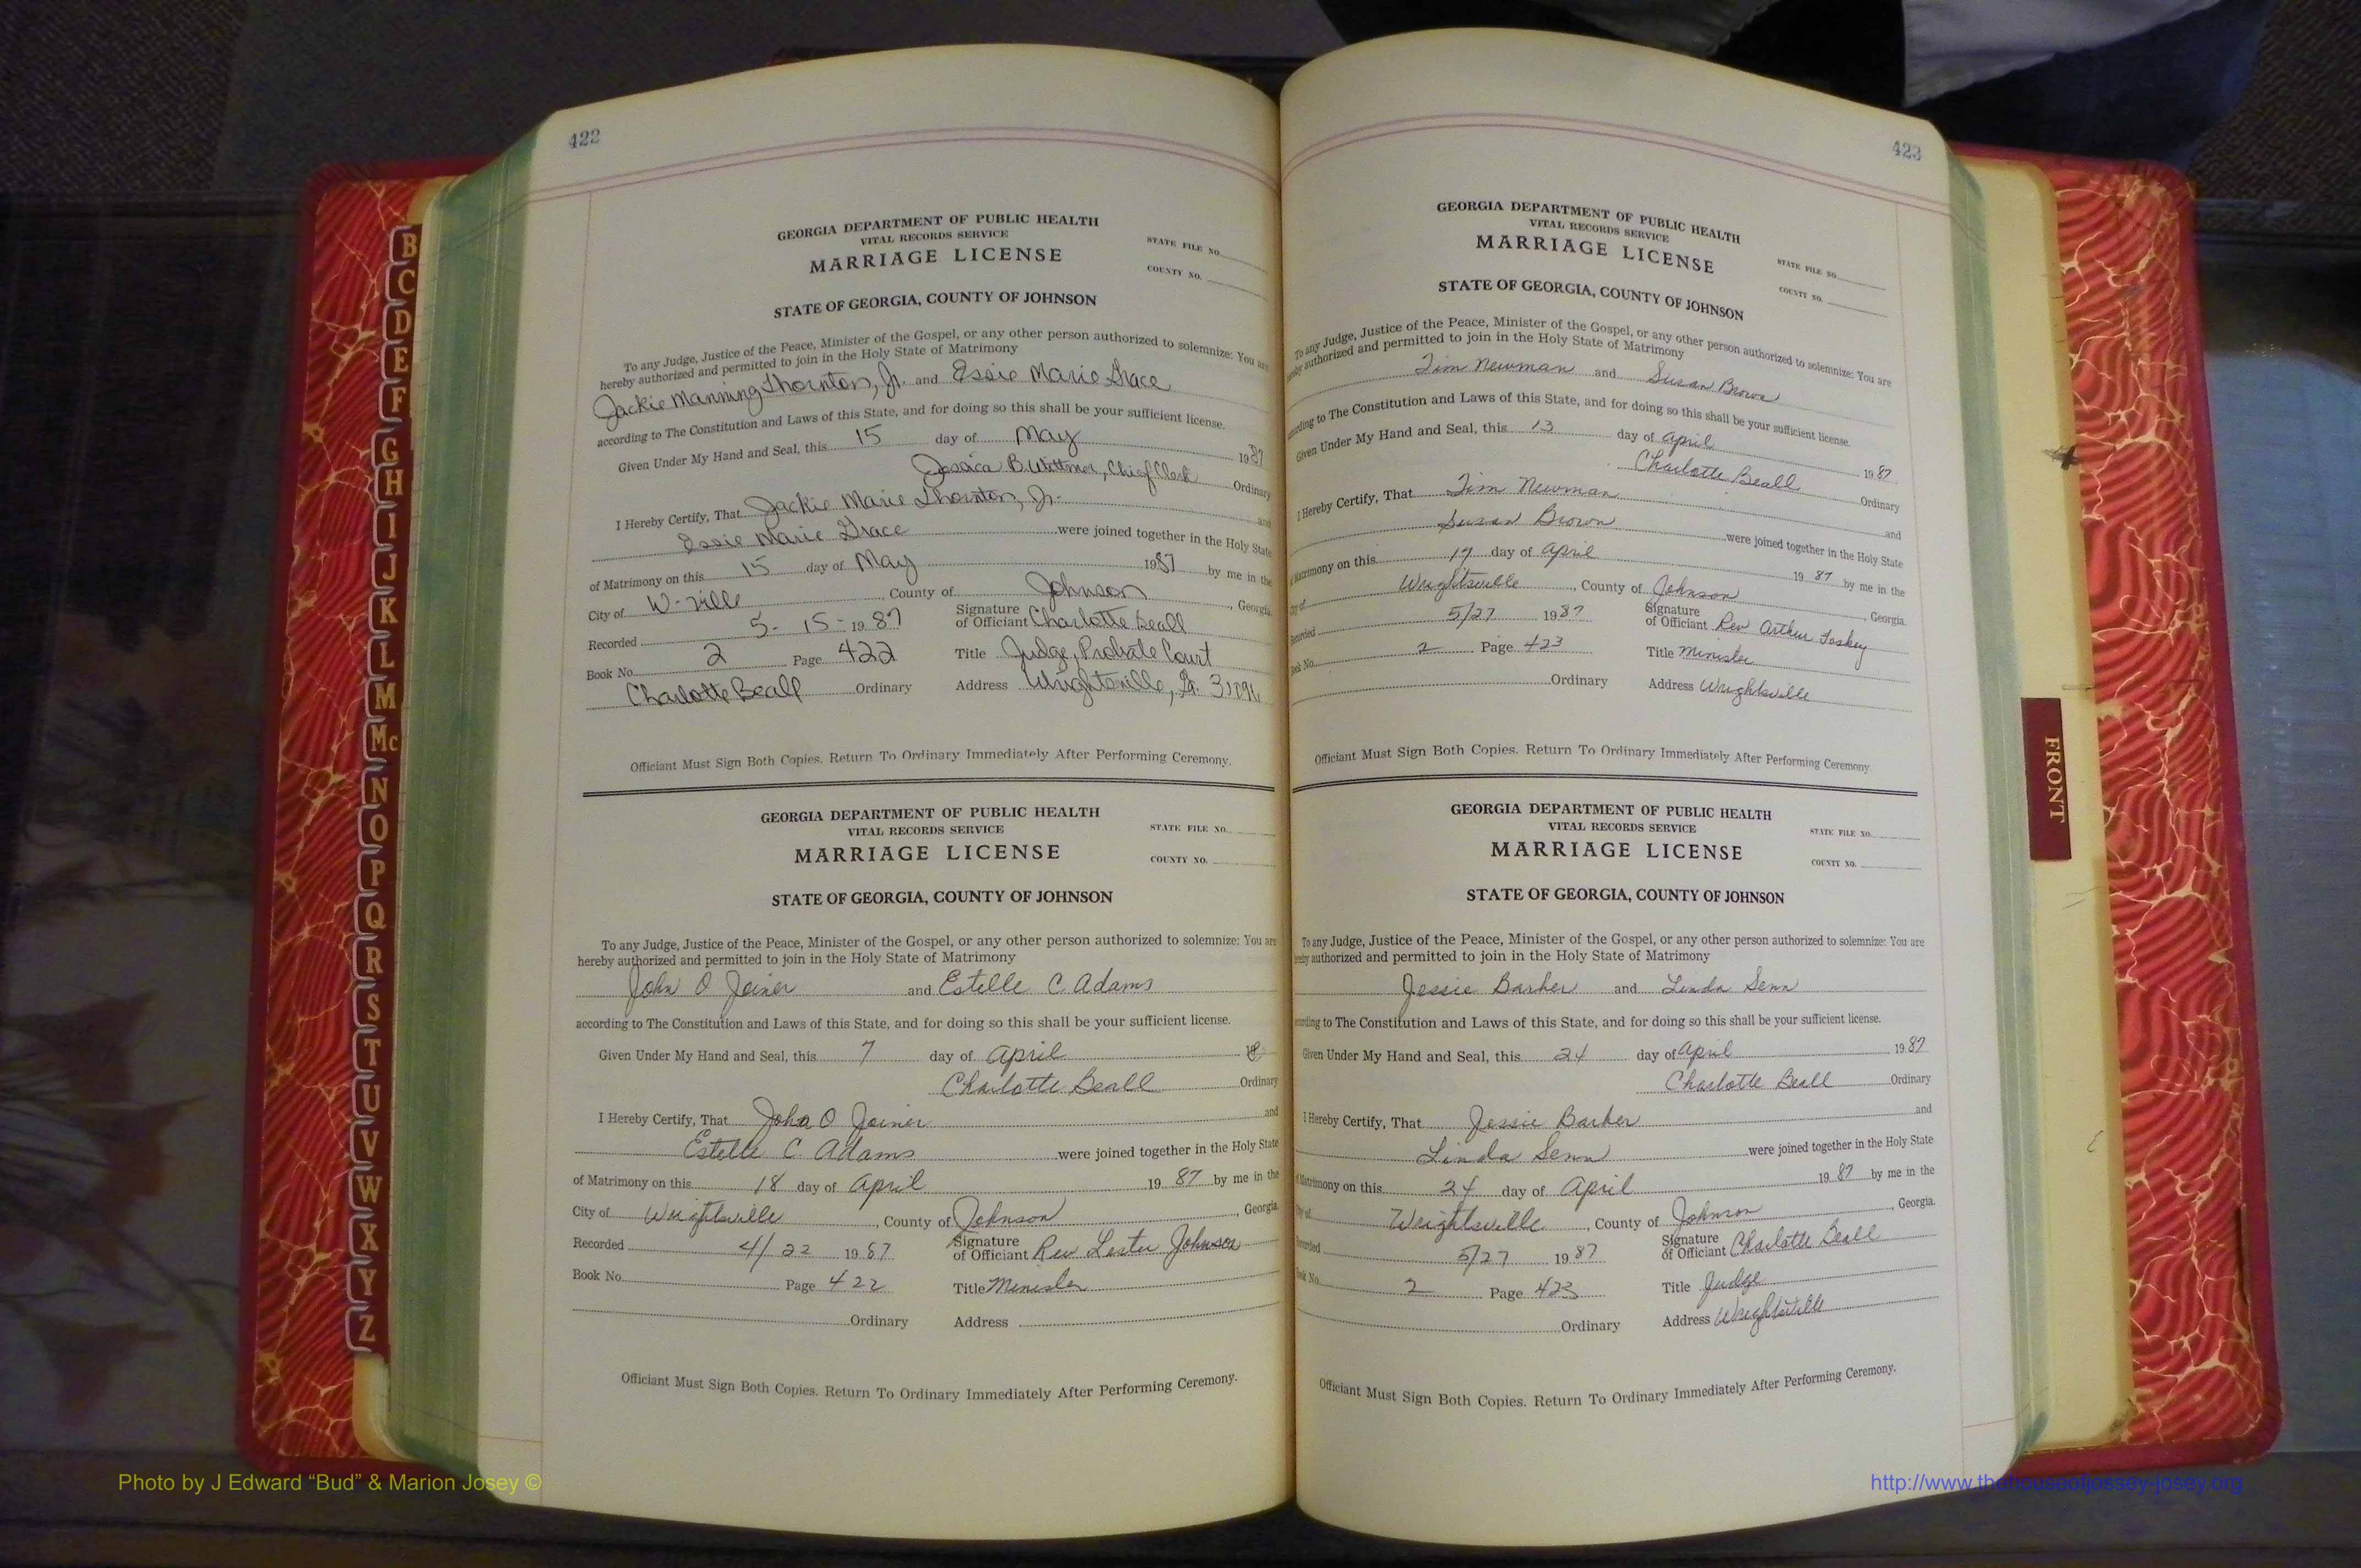 422
GEORGIA DEPARTMENT OF PUBLIC HEALTH
VITAL RECORDS SERVICE
MARRIAGE LICENSE
STATE FILE NO.
COUNTY NO.
STATE OF GEORGIA, COUNTY OF JOHNSON
To any Judge, Justice of the Peace, Minister of the Gospel, or any other person authorized to solemnize: You are
hereby authorized and permitted to join in the Holy State of Matrimony
Jackie Manning Thornton, Jr. and Essie Marie Grace
according to The Constitution and Laws of this State, and for doing so this shall be your sufficient license.
Given Under My Hand and Seal, this 15 day of May 1987
Jessica B. Chief Clerk Ordinary
I Hereby Certify, That Jackie Marie Thornton, Jr. and
Essie Marie Grace were joined together in the Holy State
of Matrimony on this 15 day of May 1987 by me in the
City of W-ville, County of Johnson, Georgia
Recorded 5-15-1987 Signature of Officiant Charlotte Beall
Book No. 2 Page 422 Title Judge, Probate Court
Charlotte Beall Ordinary Address Wrightsville, Ga. 31096
Officiant Must Sign Both Copies. Return To Ordinary Immediately After Performing Ceremony.
GEORGIA DEPARTMENT OF PUBLIC HEALTH
VITAL RECORDS SERVICE
MARRIAGE LICENSE
STATE FILE NO.
COUNTY NO.
STATE OF GEORGIA, COUNTY OF JOHNSON
To any Judge, Justice of the Peace, Minister of the Gospel, or any other person authorized to solemnize: You are
hereby authorized and permitted to join in the Holy State of Matrimony
John O Joiner and Estelle C. Adams
according to The Constitution and Laws of this State, and for doing so this shall be your sufficient license.
Given Under My Hand and Seal, this 7 day of April
Charlotte Beall Ordinary
I Hereby Certify, That John O Joiner and
Estelle C. Adams were joined together in the Holy State
of Matrimony on this 18 day of April 1987 by me in the
City of Wrightsville, County of Johnson, Georgia.
Recorded 4/22 1987 Signature of Officiant Rev Lester Johnson
Book No. Page 422 Title Minister
Ordinary Address
Officiant Must Sign Both Copies. Return To Ordinary Immediately After Performing Ceremony.
423
GEORGIA DEPARTMENT OF PUBLIC HEALTH
VITAL RECORDS SERVICE
MARRIAGE LICENSE
STATE FILE NO.
COUNTY NO.
STATE OF GEORGIA, COUNTY OF JOHNSON
To any Judge, Justice of the Peace, Minister of the Gospel, or any other person authorized to solemnize: You are
hereby authorized and permitted to join in the Holy State of Matrimony
Tim Newman and Susan Brown
according to The Constitution and Laws of this State, and for doing so this shall be your sufficient license.
Given Under My Hand and Seal, this 13 day of April 1987
Charlotte Beall Ordinary
I Hereby Certify, That Tim Newman and
Susan Brown were joined together in the Holy State
of Matrimony on this day of April 1987 by me in the
City of Wrightsville, County of Johnson, Georgia.
Recorded 5/27 1987 Signature of Officiant Rev Arthur
Book No. 2 Page 423 Title Minister
Ordinary Address Wrightsville
Officiant Must Sign Both Copies. Return To Ordinary Immediately After Performing Ceremony.
GEORGIA DEPARTMENT OF PUBLIC HEALTH
VITAL RECORDS SERVICE
MARRIAGE LICENSE
STATE FILE NO.
COUNTY NO.
STATE OF GEORGIA, COUNTY OF JOHNSON
To any Judge, Justice of the Peace, Minister of the Gospel, or any other person authorized to solemnize: You are
hereby authorized and permitted to join in the Holy State of Matrimony
Jessie Barker and Linda Senn
according to The Constitution and Laws of this State, and for doing so this shall be your sufficient license.
Given Under My Hand and Seal, this 24 day of April 1987
Charlotte Beall Ordinary
I Hereby Certify, That Jessie Barker and
Linda Senn were joined together in the Holy State
of Matrimony on this 24 day of April 1987 by me in the
City of Wrightsville, County of Johnson, Georgia.
Recorded 5/27 1987 Signature of Officiant Charlotte Beall
Book No. 2 Page 423 Title Judge
Ordinary Address Wrightsville
Officiant Must Sign Both Copies. Return To Ordinary Immediately After Performing Ceremony.
B
C
D
E
F
G
H
I
J
K
L
M
Mc
N
O
P
Q
R
S
T
U
V
W
X
Y
Z
FRONT
Photo by J Edward “Bud” & Marion Josey ©
http://www.thehouseofjossey-josey.org